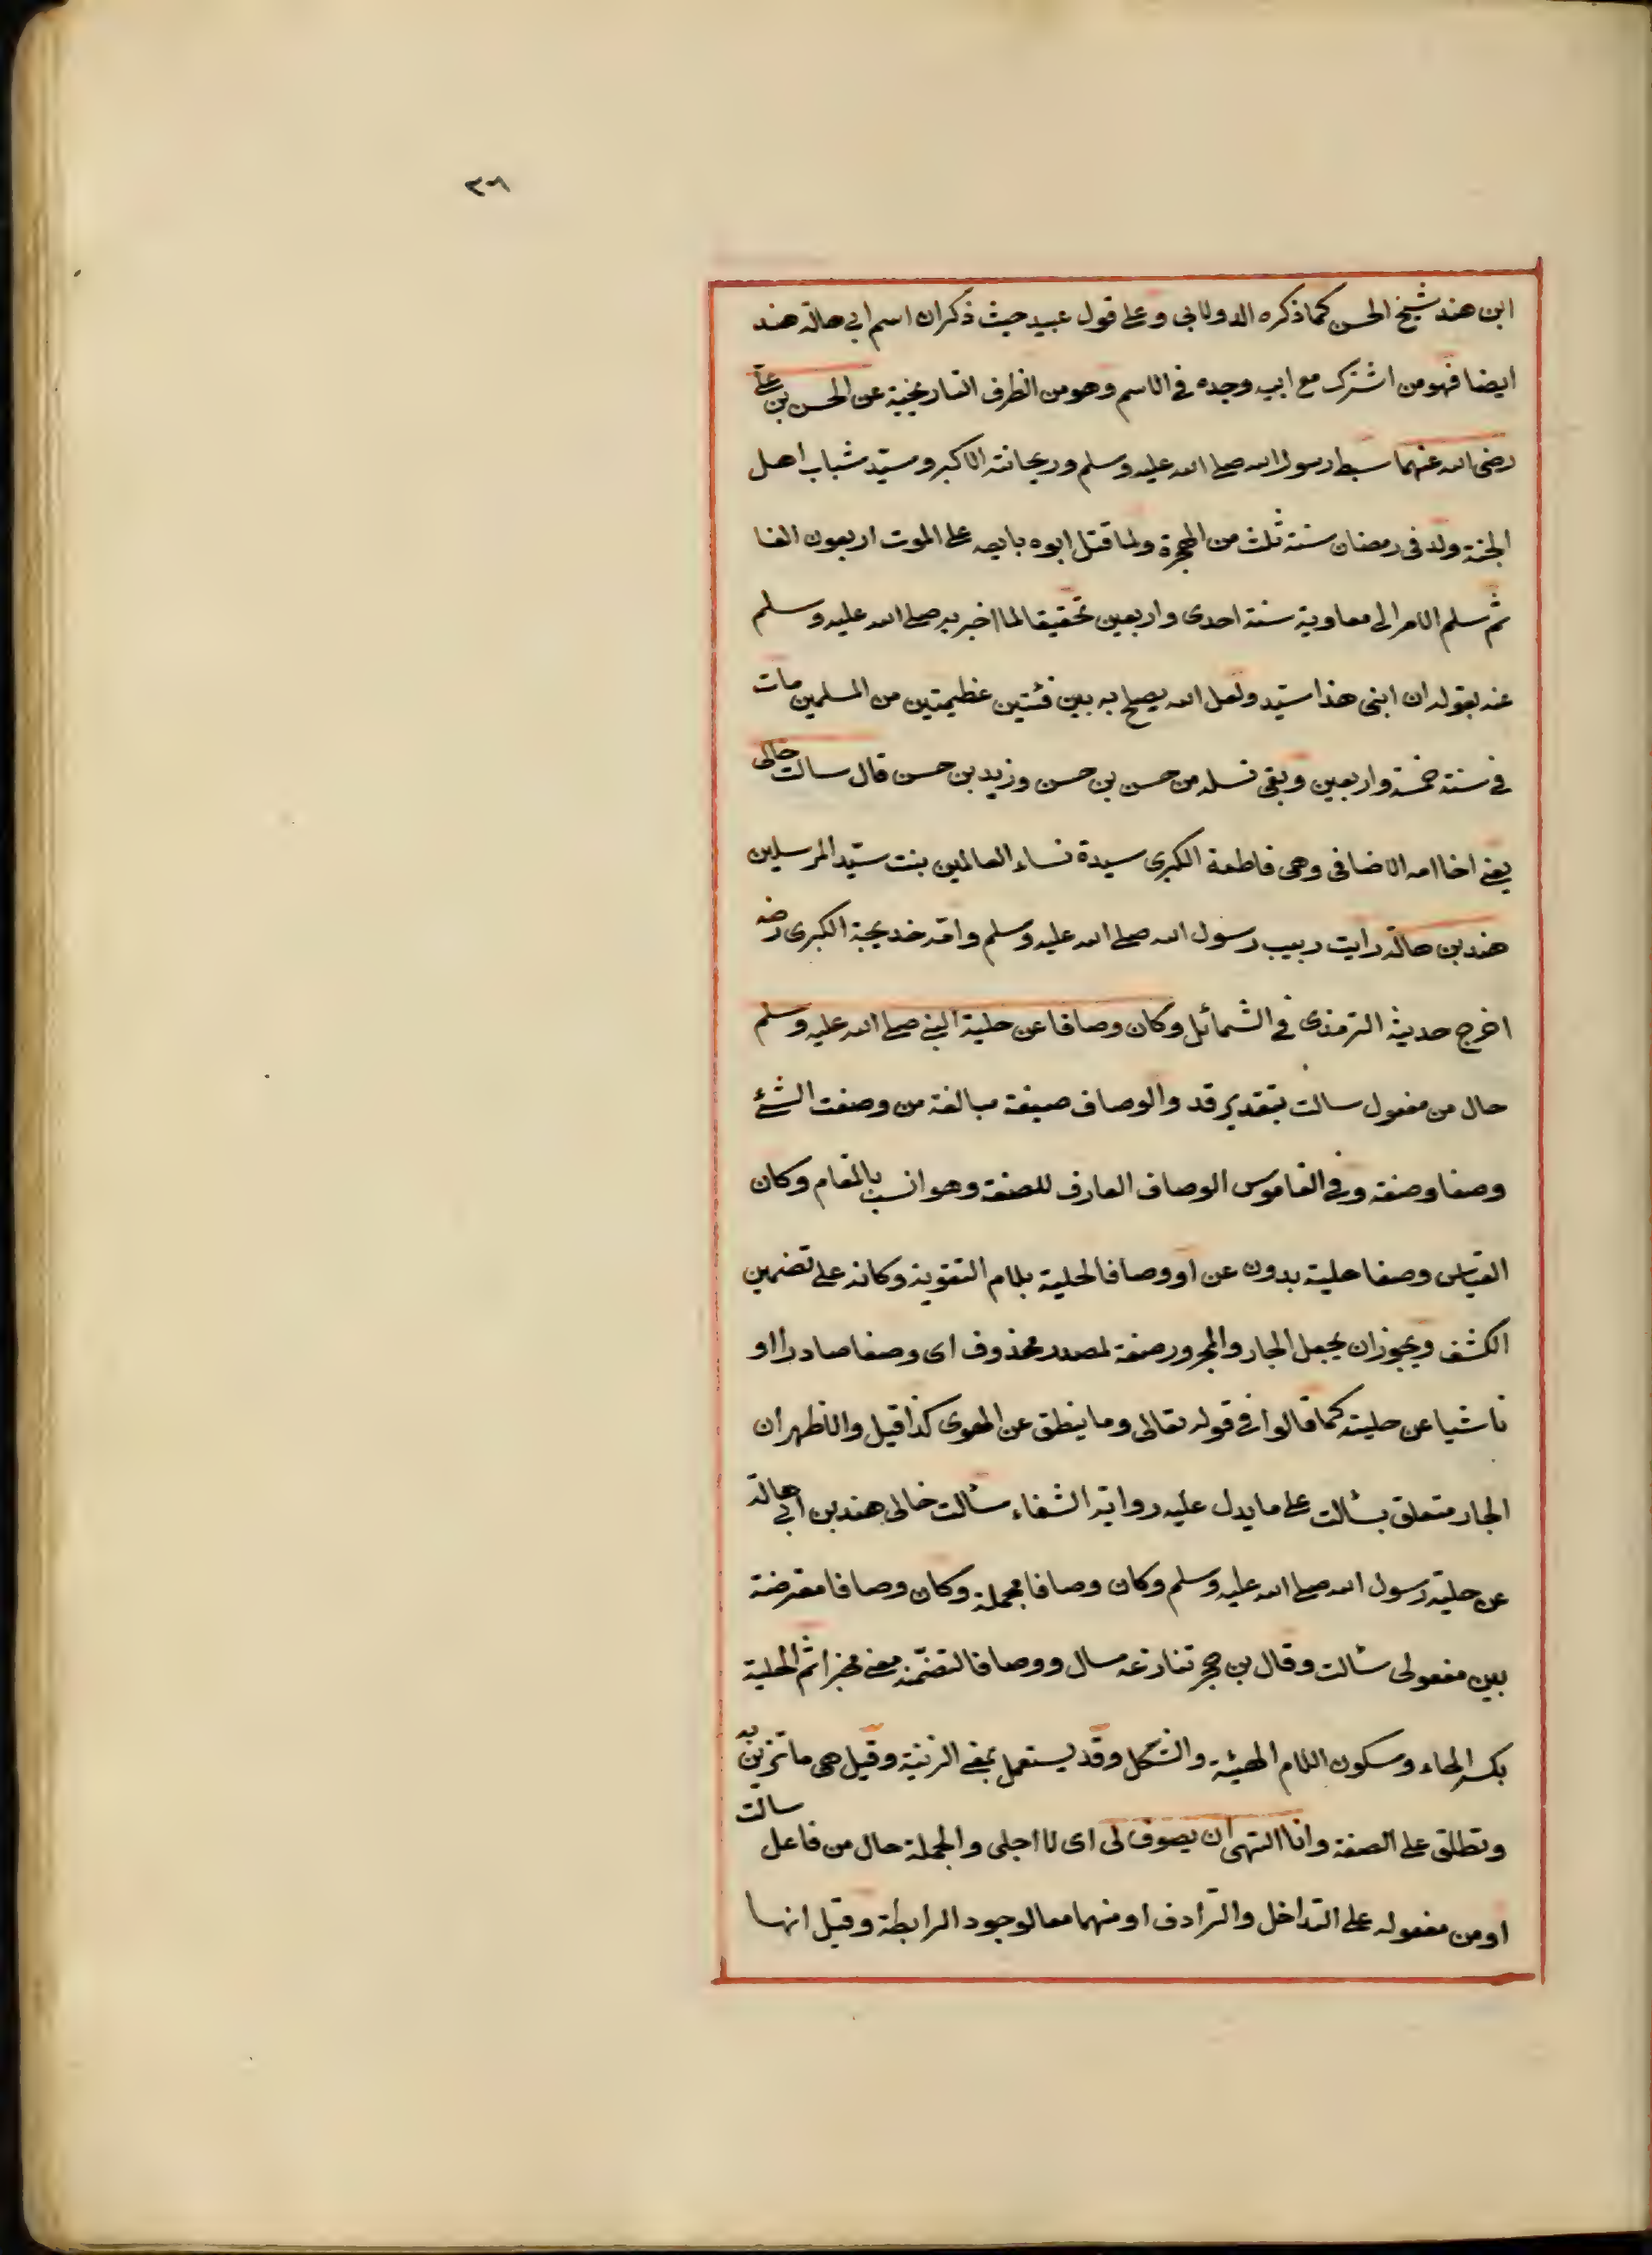 ٣٨
ابن هند شيخ الحسن كما ذكره الدولابى وعلى قول عبيد حيث ذكر ان اسم ابى هالة هند
ايضا فهو من اشترك مع ابيه وجده فى الاسم وهو من الظرف التاريخية عن الحسن بن على
رضى الله عنهما سبط رسول الله صلى الله عليه وسلم وريحانته الاكبر وسيّد شباب اهل
الجنة ولد فى رمضان سنة ثلث من الهجرة ولما قتل ابوه بايعه على الموت اربعون الفا
ثم سلم الامر الى معاوية سنة احدى واربعين تحقيقا لما اخبر به صلى الله عليه وسلم
عنه بقوله ان ابنى هذا سيّد ولعل الله يصلح به بين فئتين عظيمتين من المسلمين مات
فى سنة خمسة واربعين وبقى نسله من حسن بن حسن وزيد بن حسن قال سالت خالى
يعنى اخا امه الاضافى وهى فاطمة الكبرى سيدة نساء العالمين بنت سيّد المرسلين
هند بن هالة رايت ربيب رسول الله صلى الله عليه وسلم وامّه خديجة الكبرى رضه
اخرج حديثه الترمذى فى الشمائل وكان وصافا عن حلية النبى صلى الله عليه وسلم
حال من مفعول سالت بتقدير قد والوصاف صيغة مبالغة من وصفت الشئ
وصفا وصفة وفى القاموس الوصاف العارف للصفة وهو انسب بالمقام وكان
القياس وصفا حلية بدون عن او وصافا لحلية بلام التقوية وكانه على تضمين
الكشف ويجوز ان يجعل الجار والمجرور صفة لمصدر محذوف اى وصفا صادرا او
ناشيا عن حليته كما قالوا فى قوله تعالى وما ينطق عن الهوى كذا قيل والاظهر ان
الجار متعلق بسألت على ما يدل عليه رواية الشفاء سألت خالى هند بن ابى هالة
عن حلية رسول الله صلى الله عليه وسلم وكان وصافا فجملة وكان وصافا معترضة
بين مفعولى سألت وقال بن حجر تنازعه سال ووصافا لتضمّنه معنى مخبرا ثم الحلية
بكسر الحاء وسكون اللام الهيئة والشكل وقد يستعمل بمعنى الزينة وقيل هى ما تزين به
وتطلق على الصفة وانا اشتهى ان يصوف لى اى لا اجلى والجملة حال من فاعل سالت
او من مفعوله على التداخل والترادف او منهما معا لوجود الرابطة وقيل انها